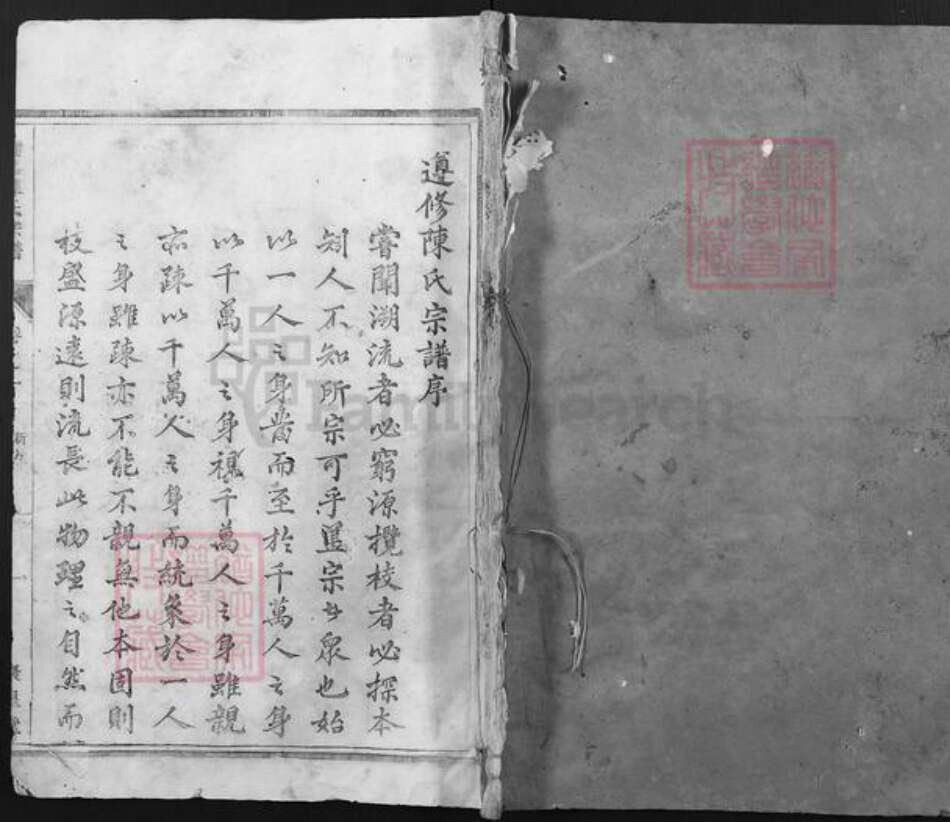 遵修陳氏宗譜序
嘗聞溯流者必窮源攬枝者必探本
矧人不知所宗可乎蓋宗者衆也始
以一人之身昔而至於千萬人之身
以千萬人之身視千萬人之身雖親
亦疎以千萬人之身而統氽於一人
之身雖疎亦不能不親無他本固則
枝盛源遠則流長此物理之自然而
FamilySearch